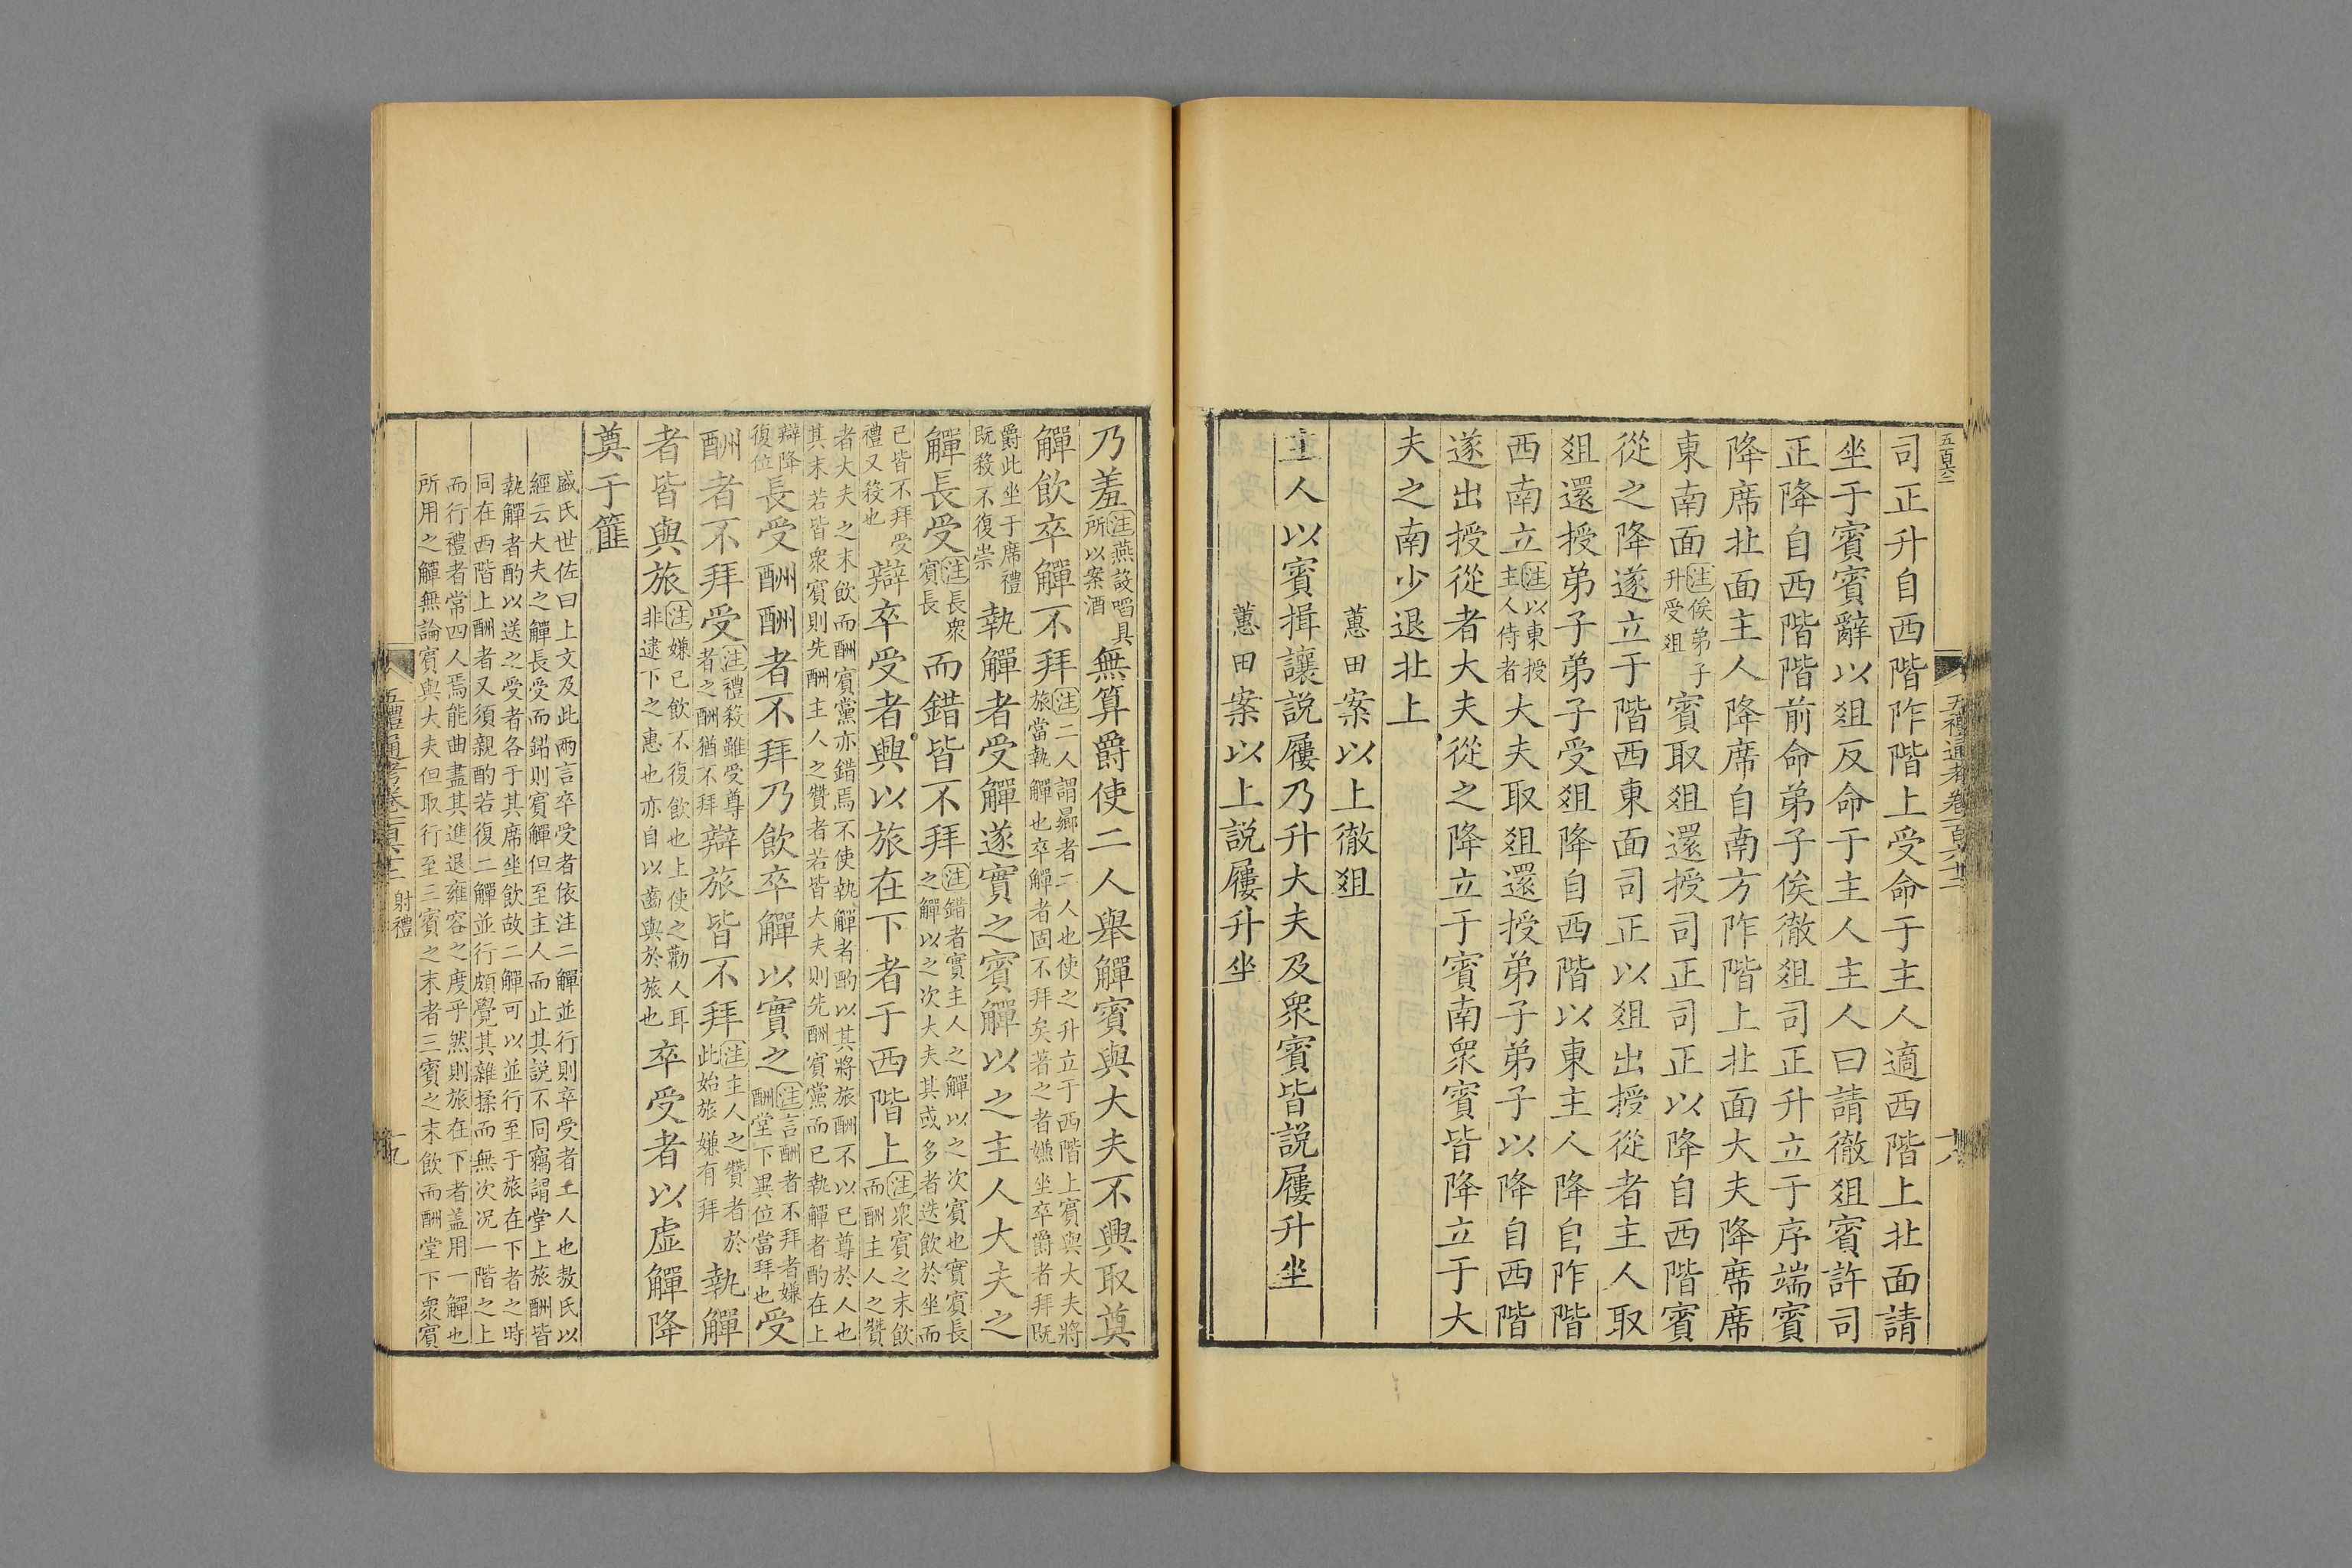 五百六二
五禮通考卷一百六十二
十八
司正升自西階阼階上受命于主人適西階上北面請
坐于賓賓辭以俎反命于主人主人曰請徹俎賓許司
正降自西階階前命弟子俟徹俎司正升立于序端賓
降席北面主人降席自南方阼階上北面大夫降席席
東南面注俟弟子升受俎賓取俎還授司正司正以降自西階賓
從之降遂立于階西東面司正以俎出授從者主人取
俎還授弟子弟子受俎降自西階以東主人降自阼階
西南立注以東授主人侍者大夫取俎還授弟子弟子以降自西階
遂出授從者大夫從之降立于賓南衆賓皆降立于大
夫之南少退北上
蕙田案以上徹俎
主人以賓揖讓説屨乃升大夫及衆賓皆説屨升坐
蕙田案以上説屨升坐
乃羞注燕設啗具所以案酒無算爵使二人舉觶賓與大夫不興取奠
觶飲卒觶不拜注二人謂鄉者二人也使之升立于西階上賓與大夫將旅當執觶也卒觶者固不拜矣著之者嫌坐卒爵者拜既
爵此坐于席禮既殺不復崇執觶者受觶遂實之賓觶以之主人大夫之
觶長受注長衆賓長而錯皆不拜注錯者實主人之觶以之次賓也實賓長之觶以之次大夫其或多者迭飲於坐而
已皆不拜受禮又殺也辯卒受者興以旅在下者于西階上注衆賓之末飲而酬主人之贊
者大夫之末飲而酬賓黨亦錯焉不使執觶者酌以其將旅酬不以己尊於人也其末若皆衆賓則先酬主人之贊者若皆大夫則先酬賓黨而已執觶者酌在上
辯降復位長受酬酬者不拜乃飲卒觶以實之注言酬者不拜者嫌酬堂下異位當拜也受
酬者不拜受注禮殺雖受尊者之酬猶不拜辯旅皆不拜注主人之贊者於此始旅嫌有拜執觶
者皆與旅注嫌已飲不復飲也上使之勸人耳非逮下之惠也亦自以齒與於旅也卒受者以虛觶降
奠于篚
盛氏世佐曰上文及此兩言卒受者依注二觶並行則卒受者主人也敖氏以
經云大夫之觶長受而錯則賓觶但至主人而止其説不同竊謂堂上旅酬皆
執觶者酌以送之受者各于其席坐飲故二觶可以並行至于旅在下者之時
同在西階上酬者又須親酌若復二觶並行頗覺其雜揉而無次况一階之上
而行禮者常四人焉能曲盡其進退雍容之度乎然則旅在下者盖用一觶也
所用之觶無論賓與大夫但取行至三賓之末者三賓之末飲而酬堂下衆賓
五禮通考卷一百六十二
射禮
十九